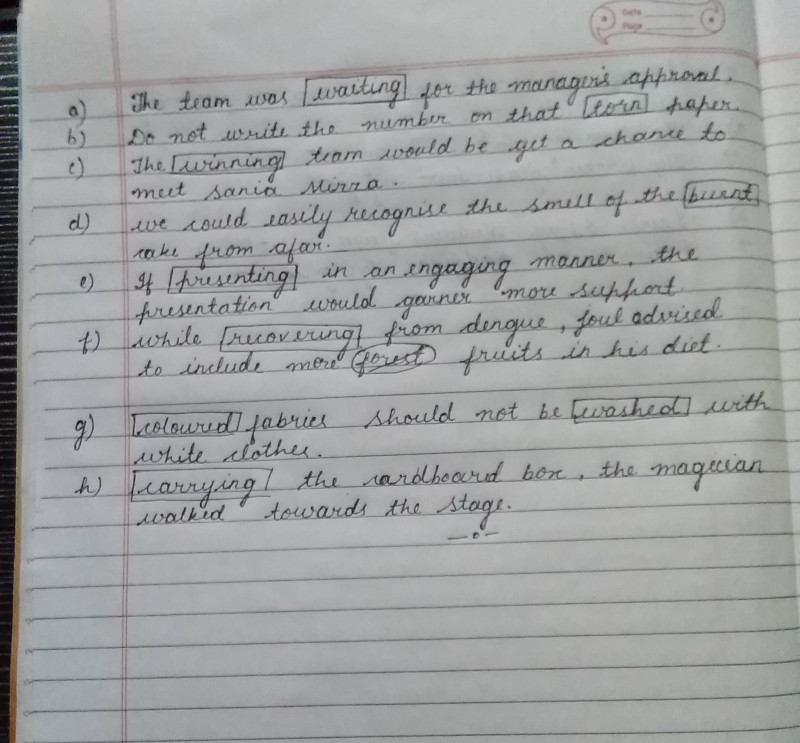 Date
Page
a) The team was [waiting] for the manager's approval.
b) Do not write the number on that [torn] paper.
c) The [winning] team would be get a chance to
meet sania Mirza.
d) we could easily recognise the smell of the [burnt]
cake from afar.
e) If [presenting] in an engaging manner, the
presentation would garner more support.
f) while [recovering] from dengue, foul advised
to include more forest fruits in his diet.
g) [coloured] fabrics should not be [washed] with
white clothes.
h) [carrying] the cardboard box, the magician
walked towards the stage.
—o—